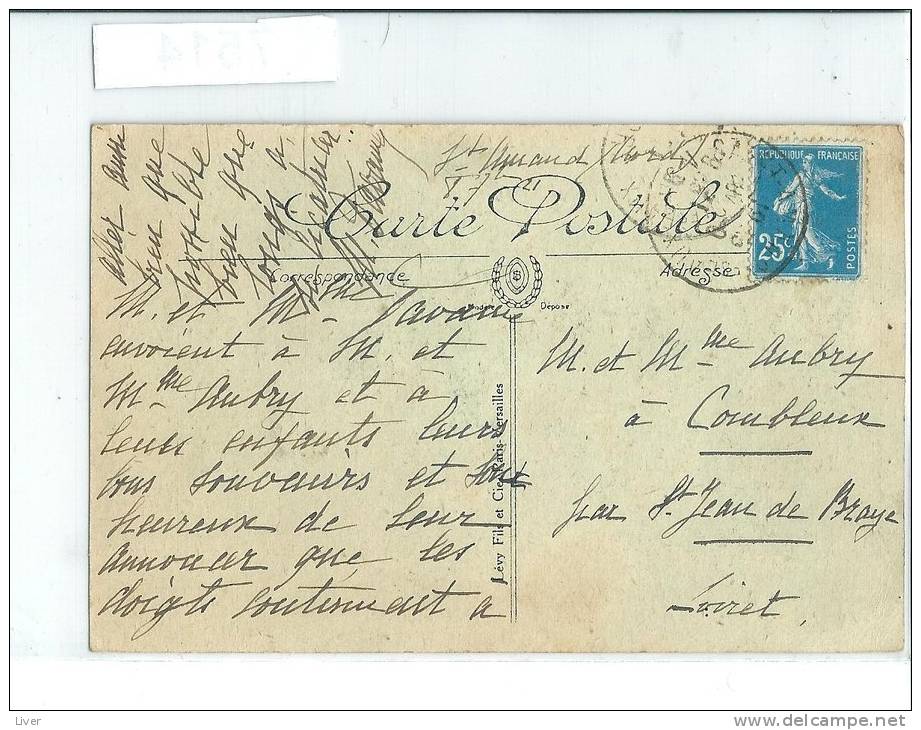 7514
St Amand Nord
RÉPUBLIQUE FRANÇAISE
25c
POSTES
Carte Postale
Correspondance
Adresse
Modèle Déposé
M. et Mme Javanne
envoient à M. et
Mme Aubry et à
leurs enfants leurs
bons souvenirs et sont
heureux de leur
annoncer que les
doigts continuent à
aller aussi
bien que
possible
bien que
longs à
M. et Mme Aubry
à Combleux
par St Jean de Braye
Loiret
Lévy Fils et Cie, Paris-Versailles
Liver
www.delcampe.net